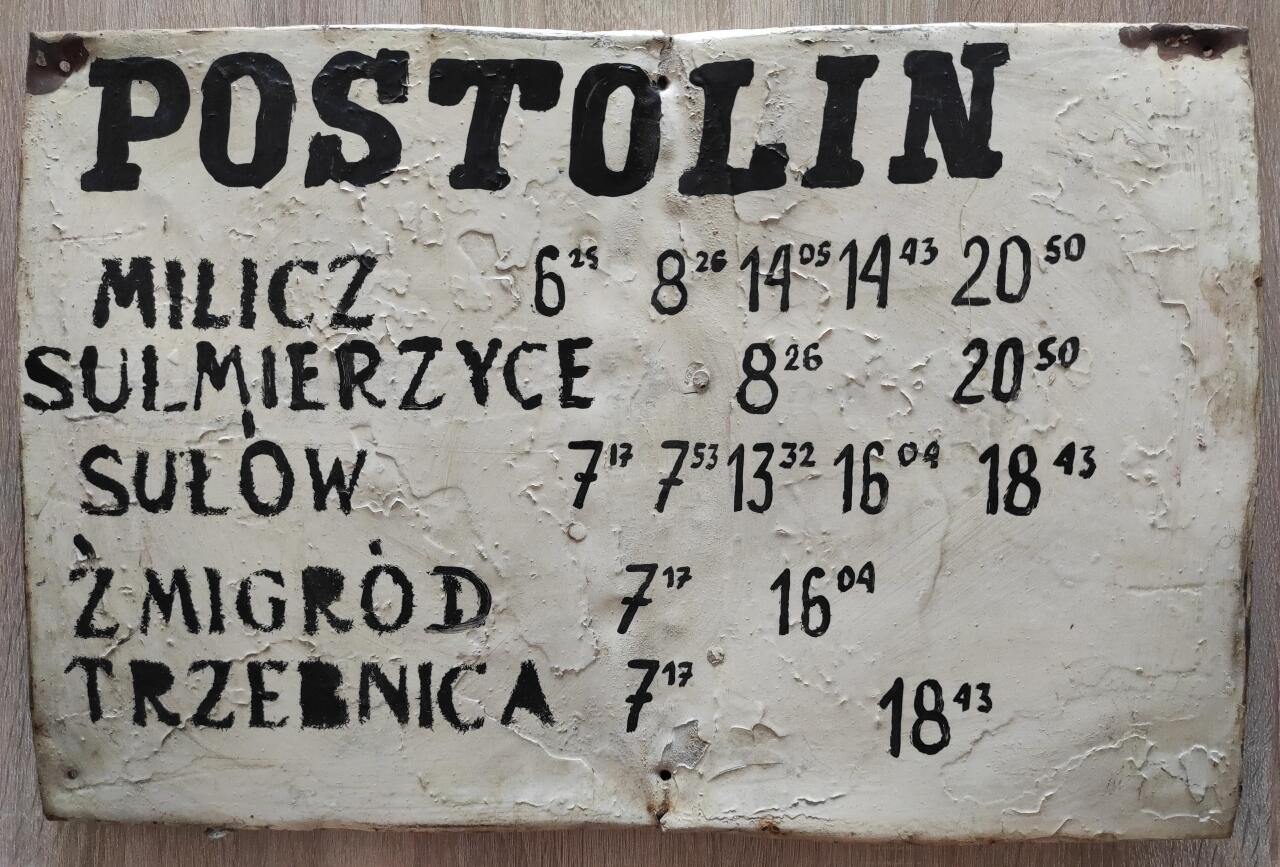 POSTOLIN
MILICZ 6²⁵ 8²⁶ 14⁰⁵ 14⁴³ 20⁵⁰
SULMIERZYCE 8²⁶ 20⁵⁰
SUŁÓW 7¹⁷ 7⁵³ 13³² 16⁰⁴ 18⁴³
ŻMIGRÓD 7¹⁷ 16⁰⁴
TRZEBNICA 7¹⁷ 18⁴³